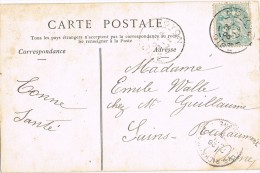 CARTE POSTALE
Tous les pays étrangers n'acceptent pas la correspondance au recto,
se renseigner à la Poste
Correspondance
Adresse
Madame
Emile Walle
chez M Guillaume
Sains-Richaumont
Bonne
Santé